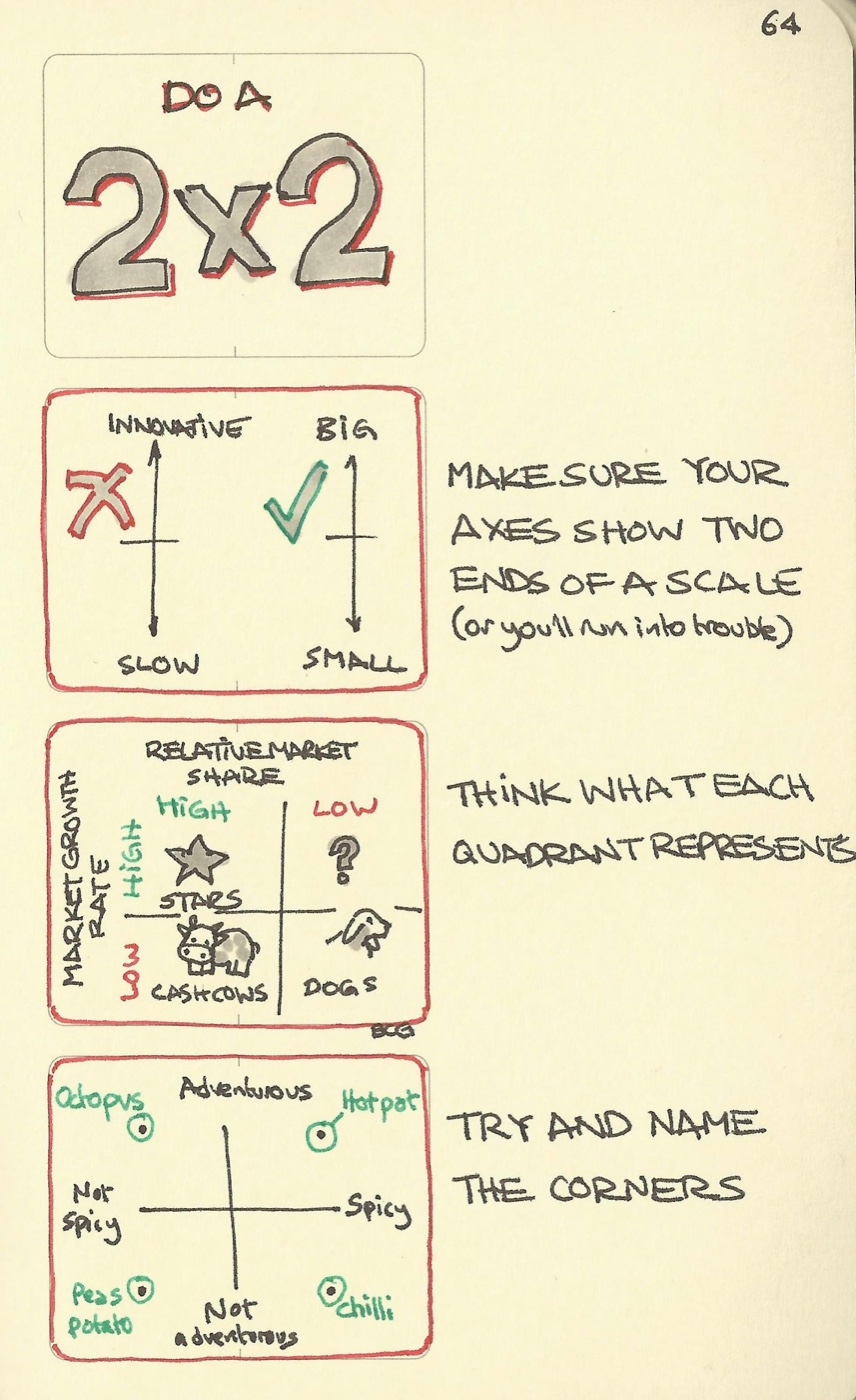 64
DO A
2x2
INNOVATIVE
BIG
SLOW
SMALL
MAKE SURE YOUR
AXES SHOW TWO
ENDS OF A SCALE
(or you'll run into trouble)
RELATIVE MARKET
SHARE
HIGH
LOW
MARKET GROWTH
RATE
HIGH
LOW
?
STARS
CASH COWS
DOGS
BCG
THINK WHAT EACH
QUADRANT REPRESENTS
Adventurous
Octopus
Hotpot
Not
spicy
Spicy
Peas
potato
Not
adventurous
chilli
TRY AND NAME
THE CORNERS